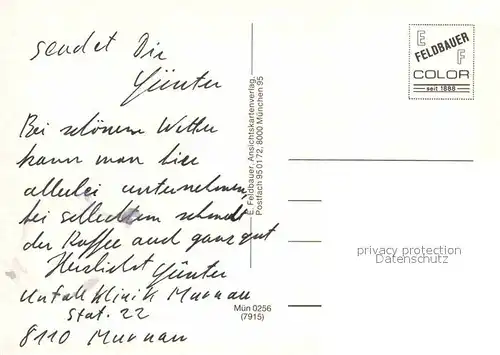 sendet Dir
Günter
Bei schönem Wetter
kann man hier
allerlei unternehmen,
bei schlechtem schmeckt
der Kaffee auch ganz gut
Herzlichst Günter
Unfall Klinik Murnau
Stat. 22
8110 Murnau
E. Feldbauer, Ansichtskartenverlag,
Postfach 95 01 72, 8000 München 95
Mün 0256
(7915)
E
FELDBAUER
F
COLOR
seit 1888
privacy protection
Datenschutz